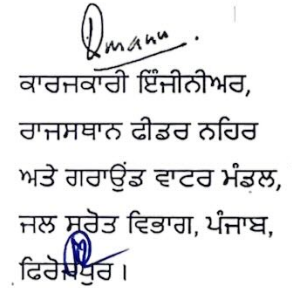 ਕਾਰਜਕਾਰੀ ਇੰਜੀਨੀਅਰ,
ਰਾਜਸਥਾਨ ਫੀਡਰ ਨਹਿਰ
ਅਤੇ ਗਰਾਉਂਡ ਵਾਟਰ ਮੰਡਲ,
ਜਲ ਸਰੋਤ ਵਿਭਾਗ, ਪੰਜਾਬ,
ਫਿਰੋਜਪੁਰ।